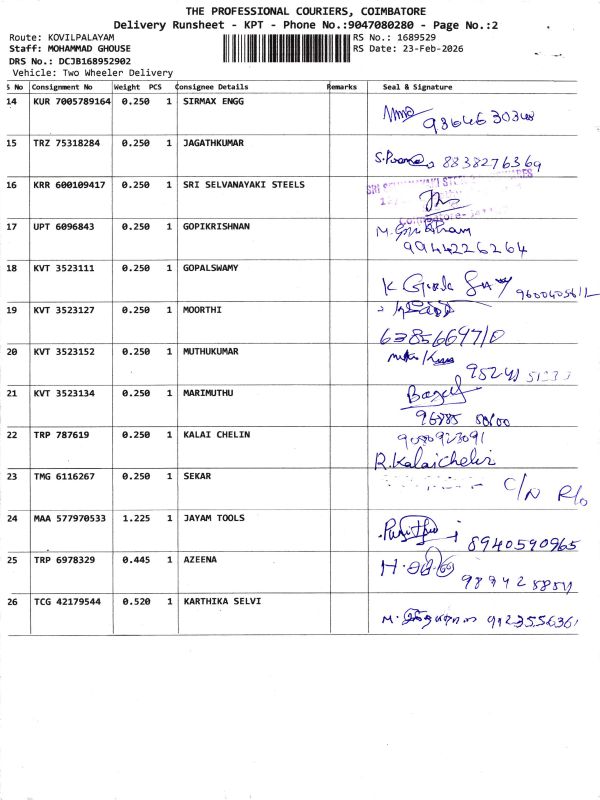 THE PROFESSIONAL COURIERS, COIMBATORE
Delivery Runsheet - KPT - Phone No.:9047080280 - Page No.:2
Route: KOVILPALAYAM RS No.: 1689529
Staff: MOHAMMAD GHOUSE RS Date: 23-Feb-2026
DRS No.: DCJB168952902
Vehicle: Two Wheeler Delivery
S No Consignment No Weight PCS Consignee Details Remarks Seal & Signature
14 KUR 7005789164 0.250 1 SIRMAX ENGG
15 TRZ 75318284 0.250 1 JAGATHKUMAR
8838276369
16 KRR 600109417 0.250 1 SRI SELVANAYAKI STEELS
17 UPT 6096843 0.250 1 GOPIKRISHNAN
9944226264
18 KVT 3523111 0.250 1 GOPALSWAMY
19 KVT 3523127 0.250 1 MOORTHI
6385669710
20 KVT 3523152 0.250 1 MUTHUKUMAR
21 KVT 3523134 0.250 1 MARIMUTHU
22 TRP 787619 0.250 1 KALAI CHELIN
9080923091
R.Kalaichelin
23 TMG 6116267 0.250 1 SEKAR
C/N R/o
24 MAA 577970533 1.225 1 JAYAM TOOLS
8940590965
25 TRP 6978329 0.445 1 AZEENA
26 TCG 42179544 0.520 1 KARTHIKA SELVI